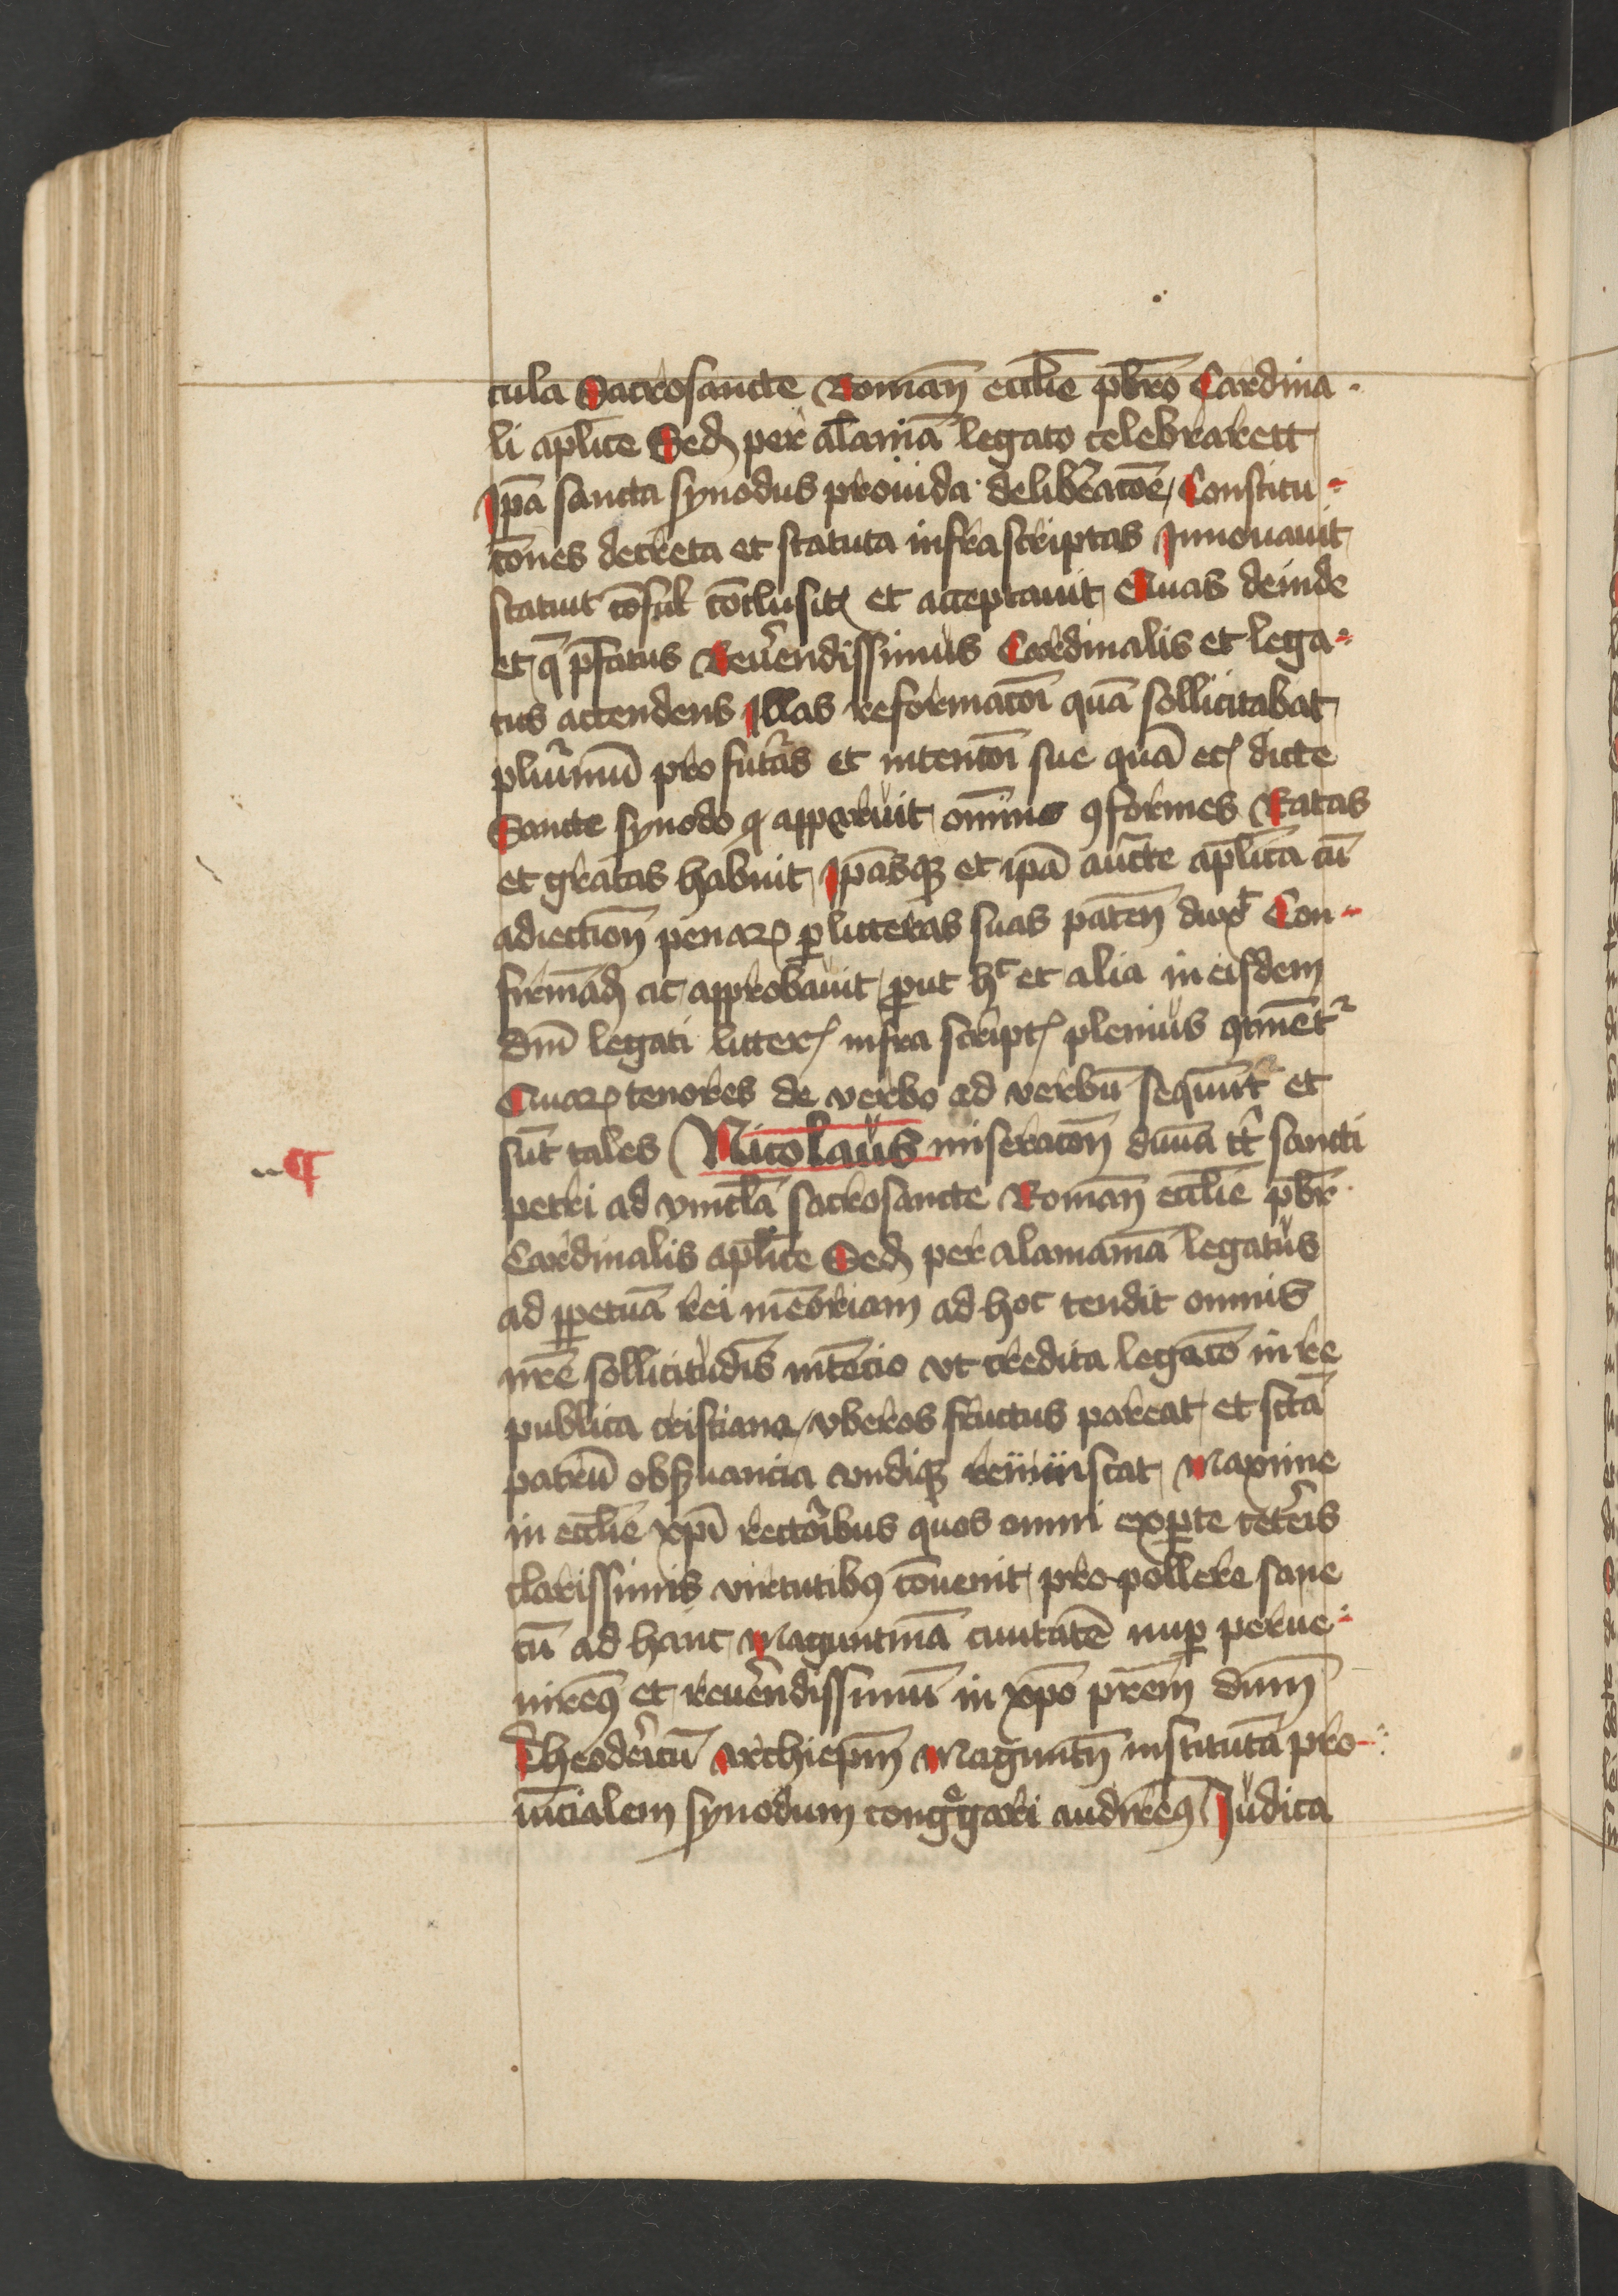 cula Sacrosancte Romañ eccl̄ie pb̄ro Cardina
li apl̄ice Sed̃ per al̄amā legato celebrarett
Ip̄a sancta synodus prouida delibẽatōe Constitu
tōnes decreta et statuta infrascriptas Innouauit
statuit cōsul conclusitꝫ et acceptauit Quas deinde
et q̄ p̄fatus Reuẽendissimus Cardinalis et lega
tus attendens Illas reformatōi quā sollicitabat
pluĩmū pro futũas et intentōi sue quā etꝫ dicte
Sancte synodo ꝙ apparuit om̄ino ꝯformes Ratas
et gratas habuit Ip̄asqꝫ et ip̄a auc̄te apl̄ica cū
adiectioñ penaꝝ ꝑ litteras suas pateñ dux̄t Con
firmād̃ ac approbauit ꝓut hͨ et alia in eisdem
dn̄i legati litterꝭ infra scriptꝭ plenius ꝯtinēt᷑
Quaꝝ tenores de verbo ad verbū sequūt᷑ et
sūt tales Nicolaus miseracoñ diuīa tt̄ sancti
petri ad vincl̄a sacrosancte Romañ eccl̄ie pb̄r
Cardinalis apl̄ice Sed̃ per alamaniā legatus
ad ꝑpetuā rei mēoriam ad hoc tendit omnis
nr̄e sollicitudīs intēcio vt credita legacō in re
publica cristiana vberos fructus pareat et sctā
patrū obẜuancia vndiqꝫ reuiuiscat Maxime
in eccl̄ie xp̄i rectoĩbus quos omni ex ꝑte cetẽis
clarissimis virtutibꝰ cōuenit pro pollere sane
cū ad hanc Maguntinā ciuitatē nuꝑ perue
nireꝰ et reuẽendissimū in xp̄o pr̄em dn̄m
Theodeĩcū Archiep̄m Magunt̃ institutā pro
uīcialem synodum congͦgari audireꝰ Iudica
¶